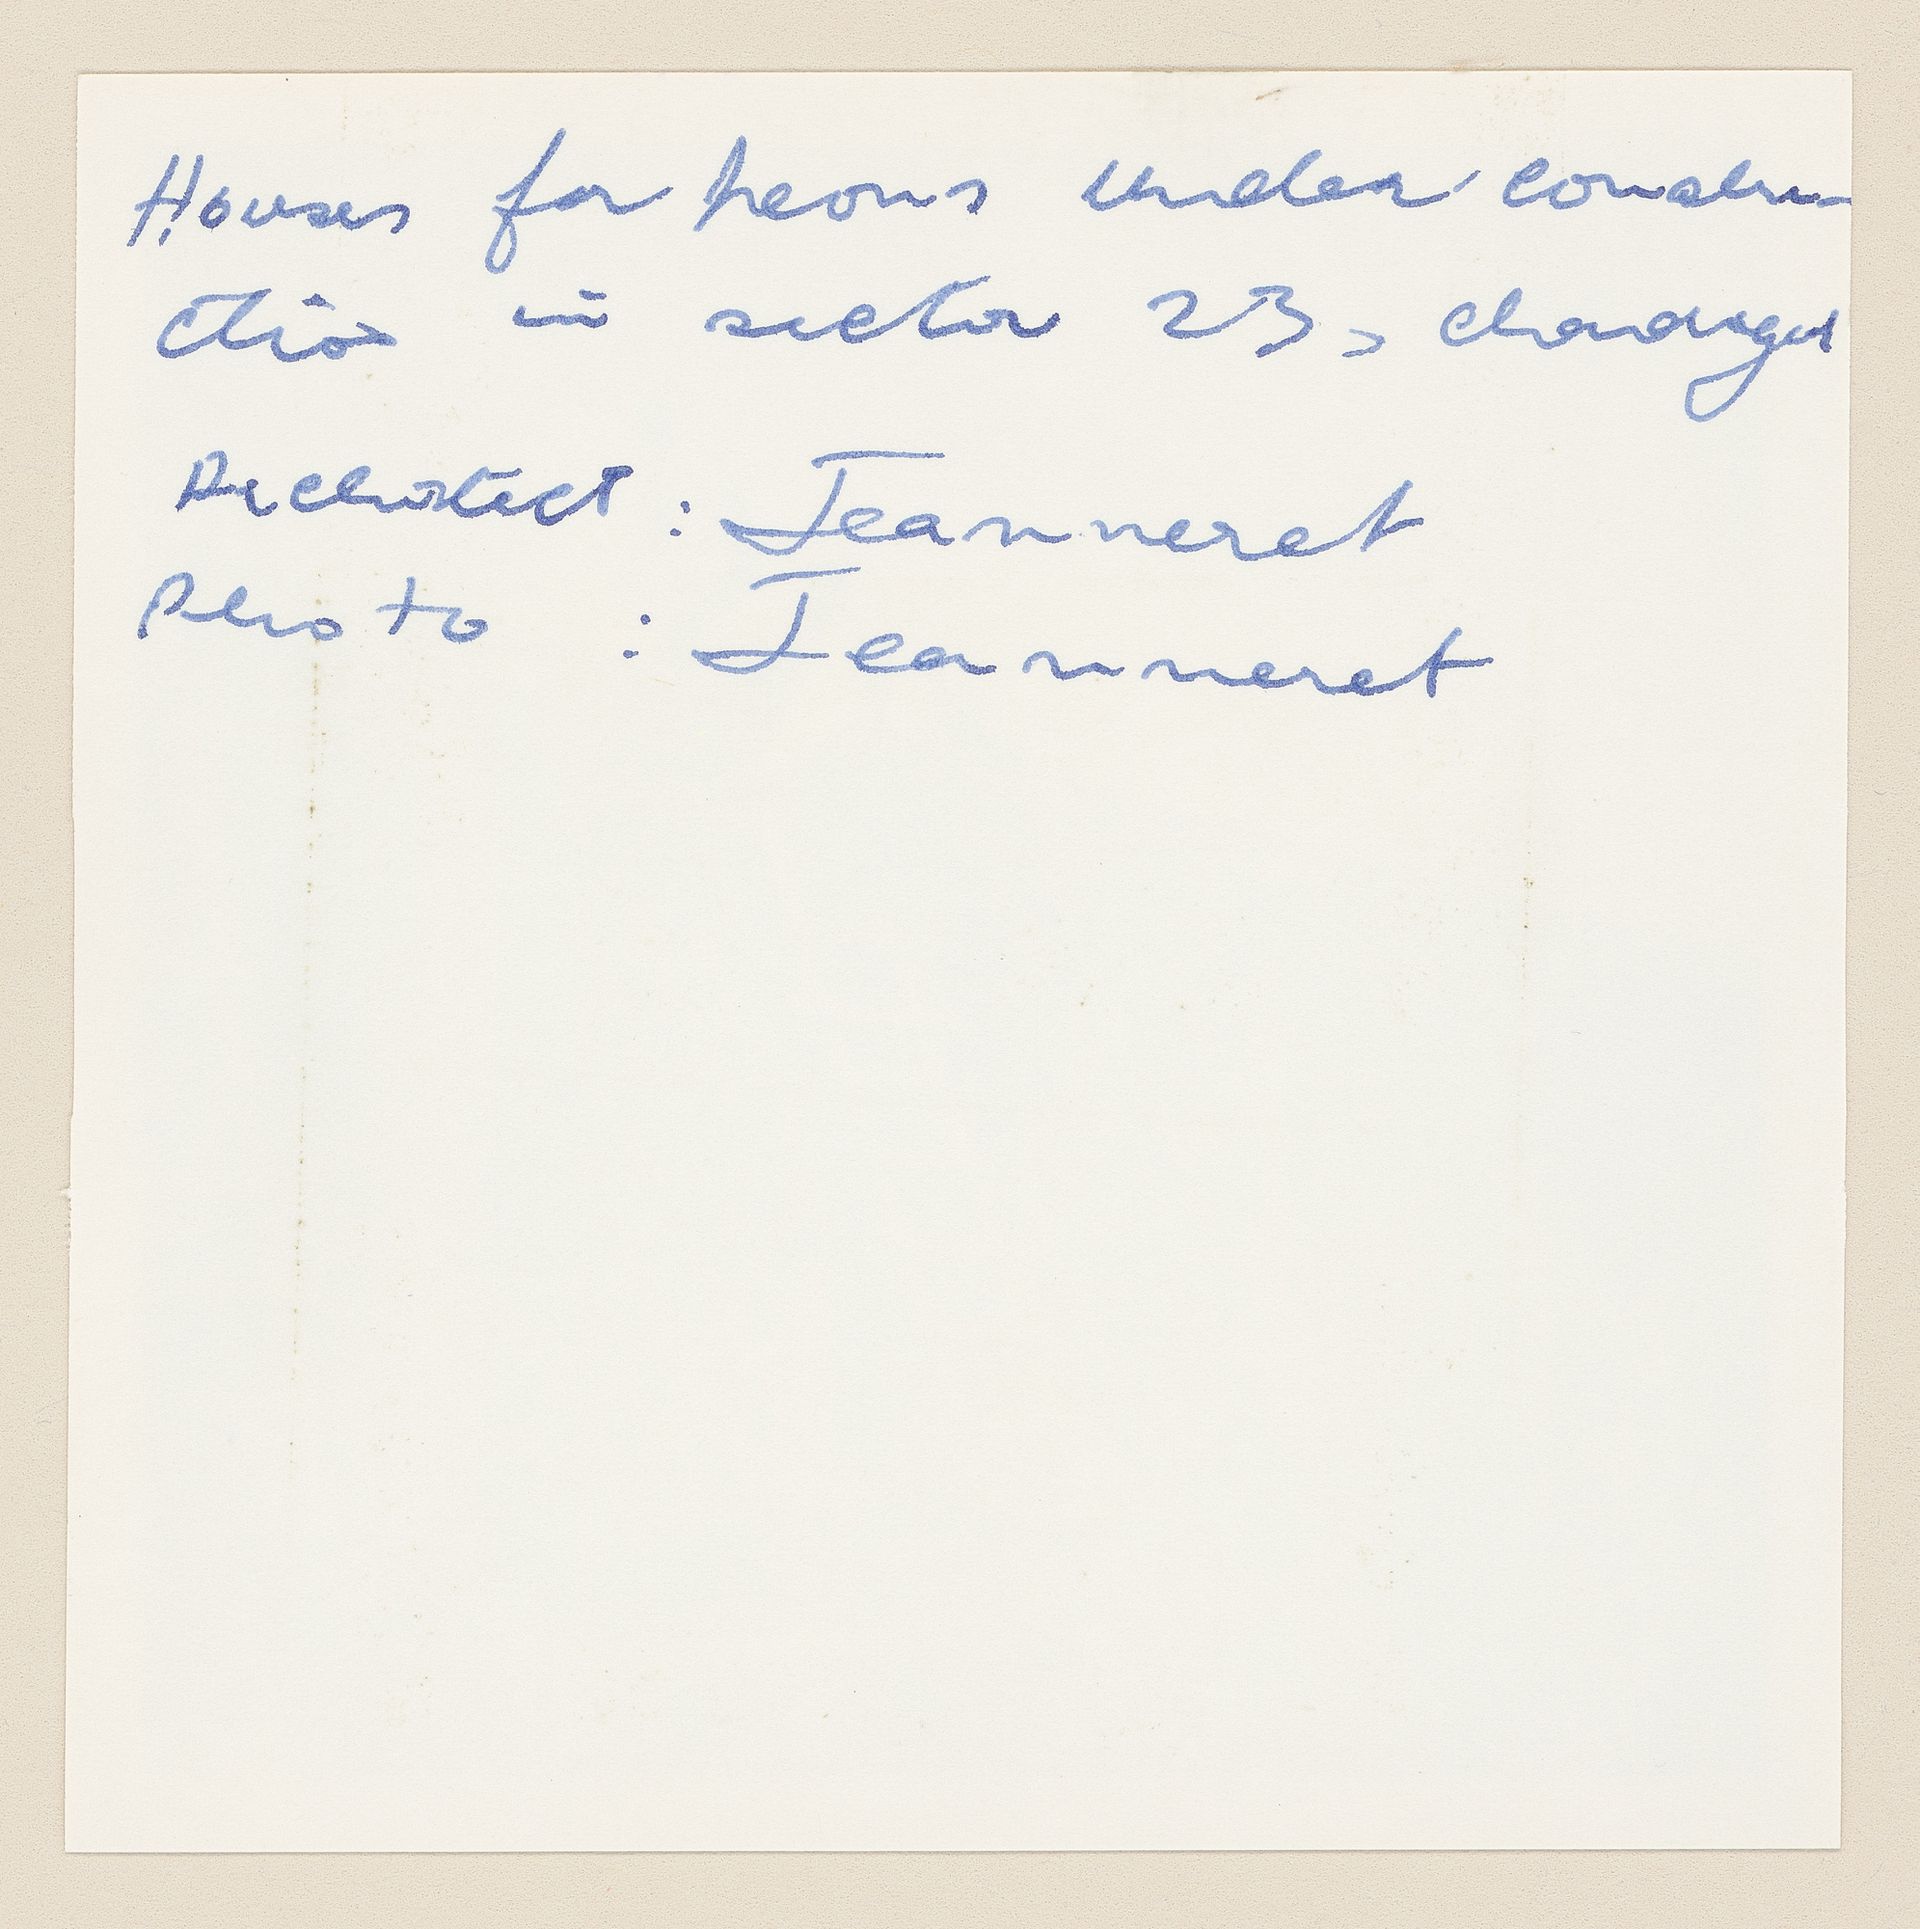 Houses for peons under constru-
ction in sector 23, Chandigar
Architect : Jeanneret
Photo : Jeanneret